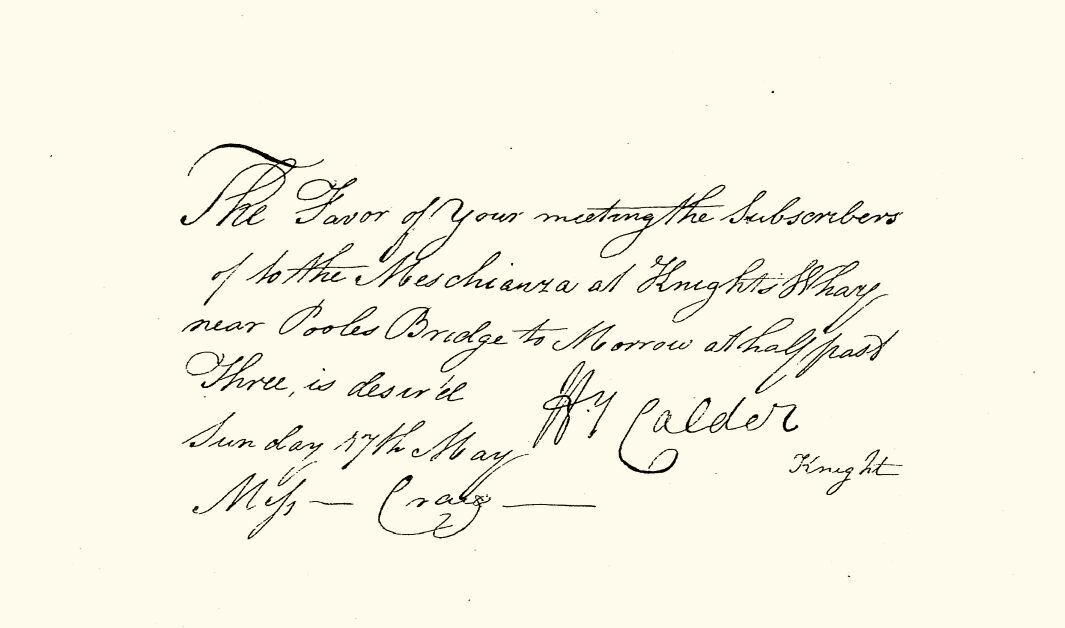 The Favor of Your meeting the Subscribers
of to the Meschianza at Knights Wharf
near Pooles Bridge to Morrow at half past
Three, is desir'd
Hy Calder
Sunday 17th May
Knight
Miss — Craig —